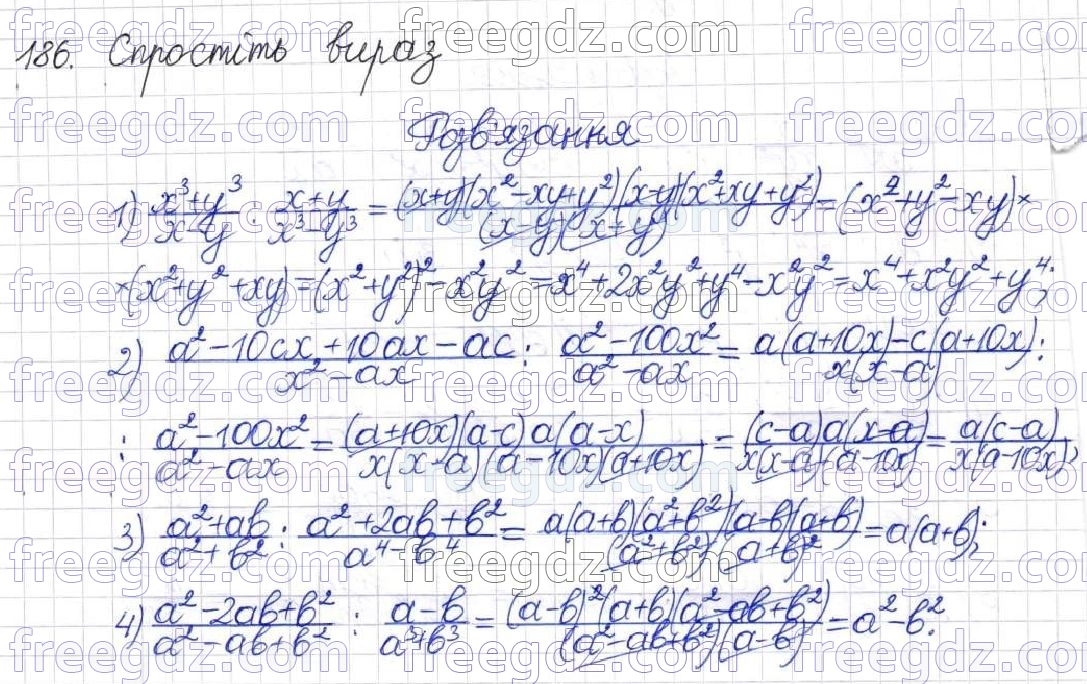 186. Спростіть вираз
Розв'язання
1) \frac{x^3+y^3}{x-y} : \frac{x+y}{x^3-y^3} = \frac{(x+y)(x^2-xy+y^2)(x-y)(x^2+xy+y^2)}{(x-y)(x+y)} = (x^2+y^2-xy)×
×(x^2+y^2+xy)=(x^2+y^2)^2-x^2y^2=x^4+2x^2y^2+y^4-x^2y^2=x^4+x^2y^2+y^4;
2) \frac{a^2-10cx+10ax-ac}{x^2-ax} : \frac{a^2-100x^2}{a^2-ax} = \frac{a(a+10x)-c(a+10x)}{x(x-a)} :
: \frac{a^2-100x^2}{a^2-ax} = \frac{(a+10x)(a-c)a(a-x)}{x(x-a)(a-10x)(a+10x)} = \frac{(c-a)a(x-a)}{x(x-a)(a-10x)} = \frac{a(c-a)}{x(a-10x)};
3) \frac{a^2+ab}{a^2+b^2} : \frac{a^2+2ab+b^2}{a^4-b^4} = \frac{a(a+b)(a^2+b^2)(a-b)(a+b)}{(a^2+b^2)(a+b)^2} = a(a+b);
4) \frac{a^2-2ab+b^2}{a^2-ab+b^2} : \frac{a-b}{a^3+b^3} = \frac{(a-b)^2(a+b)(a^2-ab+b^2)}{(a^2-ab+b^2)(a-b)} = a^2-b^2.
freegdz.com